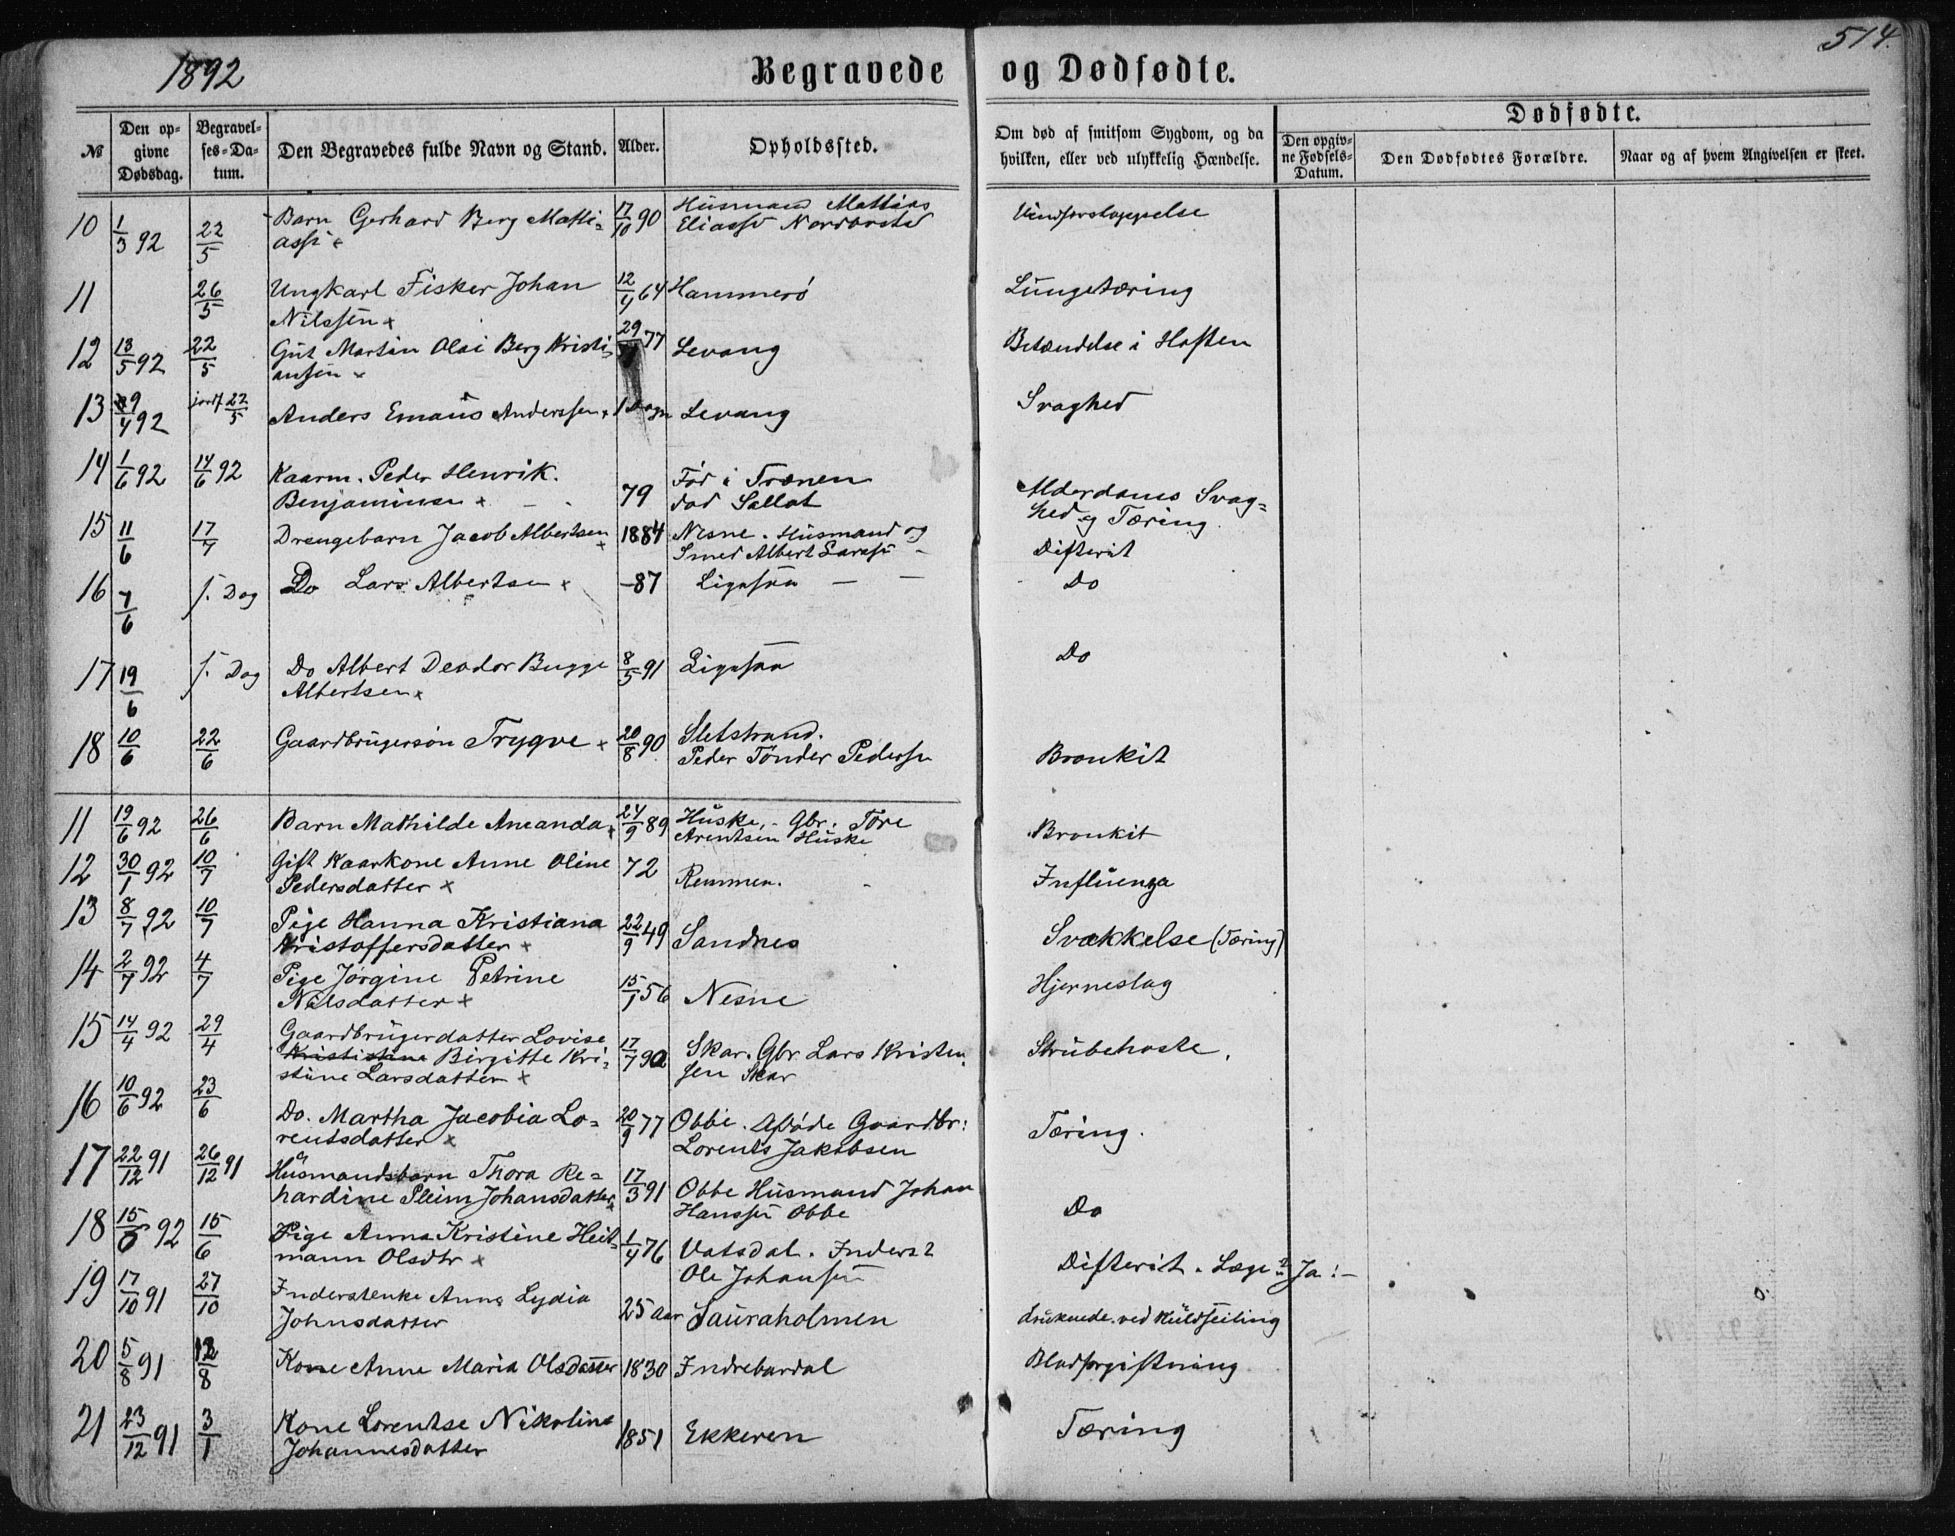 1892
514.
Begravede og Dødfødte.
№
Den opgivne Dødsdag.
Begravelses-Datum.
Den Begravedes fulde Navn og Stand.
Alder.
Opholdssted.
Om død af smitsom Sygdom, og da hvilken, eller ved ulykkelig Hændelse.
Dødfødte.
Den opgivne Fødsels-Datum.
Den Dødfødtes Forældre.
Naar og af hvem Angivelsen er skeet.
10 1/3 92 22/5 Barn Gerhard Berg Matti= 17/10 90 Husmand Mattias
assn x Eliassn
11 26/5 Ungkarl Fisker Johan 12/4 64 Hammerø Lungetæring
Nilssen x
12 13/5 92 22/5 Gut Martin Olai Berg Kristi= 29 77 Levang Betændelse i Hoften
ansen x
13 29/4 92 jordf 22/5 Anders Emaus Anderssen x 1 Levang Svaghed
14 1/6 92 14/6 92 Kaarm. Peder Henrik. 79 Fød i Trænen Alderdoms Svag=
Benjaminsen x død Sallat hed og Tæring.
15 11/6 17/7 Drengebarn Jacob Albertsen x 1884 Nesne. Husmand og Difterit
Smed Albert Larssn
16 7/6 s. Dag Do Lars Albertsen x -87 Ligesaa — — Do
17 19/6 s. Dag Do Albert Deodor Bugge 8/5 91 Ligesaa Do
Albertsen x
18 10/6 22/6 Gaardbrugersøn Trygve x 20/8 90 Sletstrand. Bronkit
Peder Tønder Pedersn
11 19/6 92 26/6 Barn Mathilde Amanda x 24/9 89 Huske, - Gbr. Tore Bronkit
Arentsen Huske
12 30/1 92 10/7 Gift Kaarkone Anne Oline 72 Remmen. Influenza
Pedersdatter x
13 8/7 92 10/7 Pige Hanna Kristiana 22/9 49 Sandnes Svækkelse (Tæring)
Kristoffersdatter x
14 2/7 92 4/7 Pige Jørgine Petrine 15/1 56 Nesne Hjerneslag
Nilsdatter x
15 14/4 92 29/4 Gaardbrugerdatter Lovise 17/7 90 Skar. Gbr Lars Kristen Strubehoste.
Krististine Birgitte Kri- sen Skar
stine Larsdatter x
16 10/6 92 23/6 Do. Martha Jacobia Lo= 20/9 77 Obbe. Gaardbr: Tæring.
rentsdatter x Lorents Jakobsen
17 22/12 91 26/12 91 Husmandsbarn Thora Re= 17/3 91 Obbe Husmand Johan Do
hardine Pleim Johansdatter x Hanssen Obbe
18 15/6 92 15/6 Pige Anna Kristine Heit- 1/4 76 Vatsdal. Inders? Difterit. Læge? Ja! —
mann Olsdtr x Ole Johansen
19 17/10 91 27/10 Inderstenke Anne Lydia 25 aar Sauraholmen druknede ved Kuldseiling
Johnsdatter
20 5/8 91 12/8 Kone Anne Maria Olsdatter 1830 Indrebardal Blodforgiftning
21 23/12 91 3/1 Kone Lorentse Nikoline 1851 Ekkeren Tæring
Johannesdatter